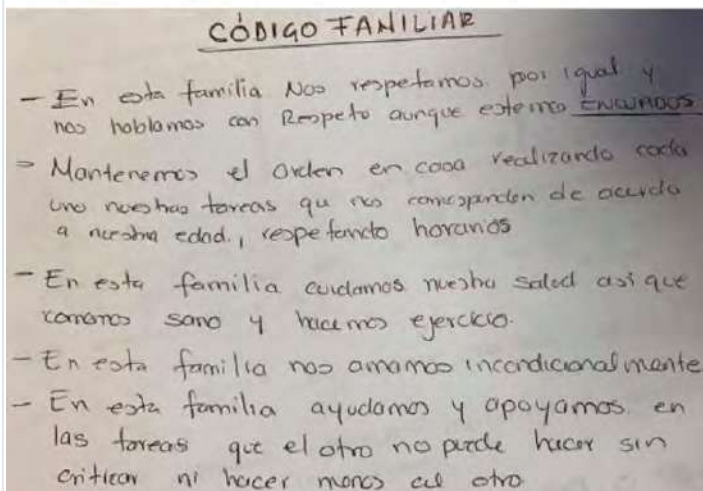 CÓDIGO FAMILIAR
- En esta familia Nos respetamos por igual y
nos hablamos con Respeto aunque estemos ENOJADOS
- Mantenemos el orden en casa realizando cada
uno nuestras tareas que nos corresponden de acuerdo
a nuestra edad, respetando horarios
- En esta familia cuidamos nuestra salud así que
comemos sano y hacemos ejercicio.
- En esta familia nos amamos incondicionalmente
- En esta familia ayudamos y apoyamos en
las tareas que el otro no puede hacer sin
criticar ni hacer menos al otro